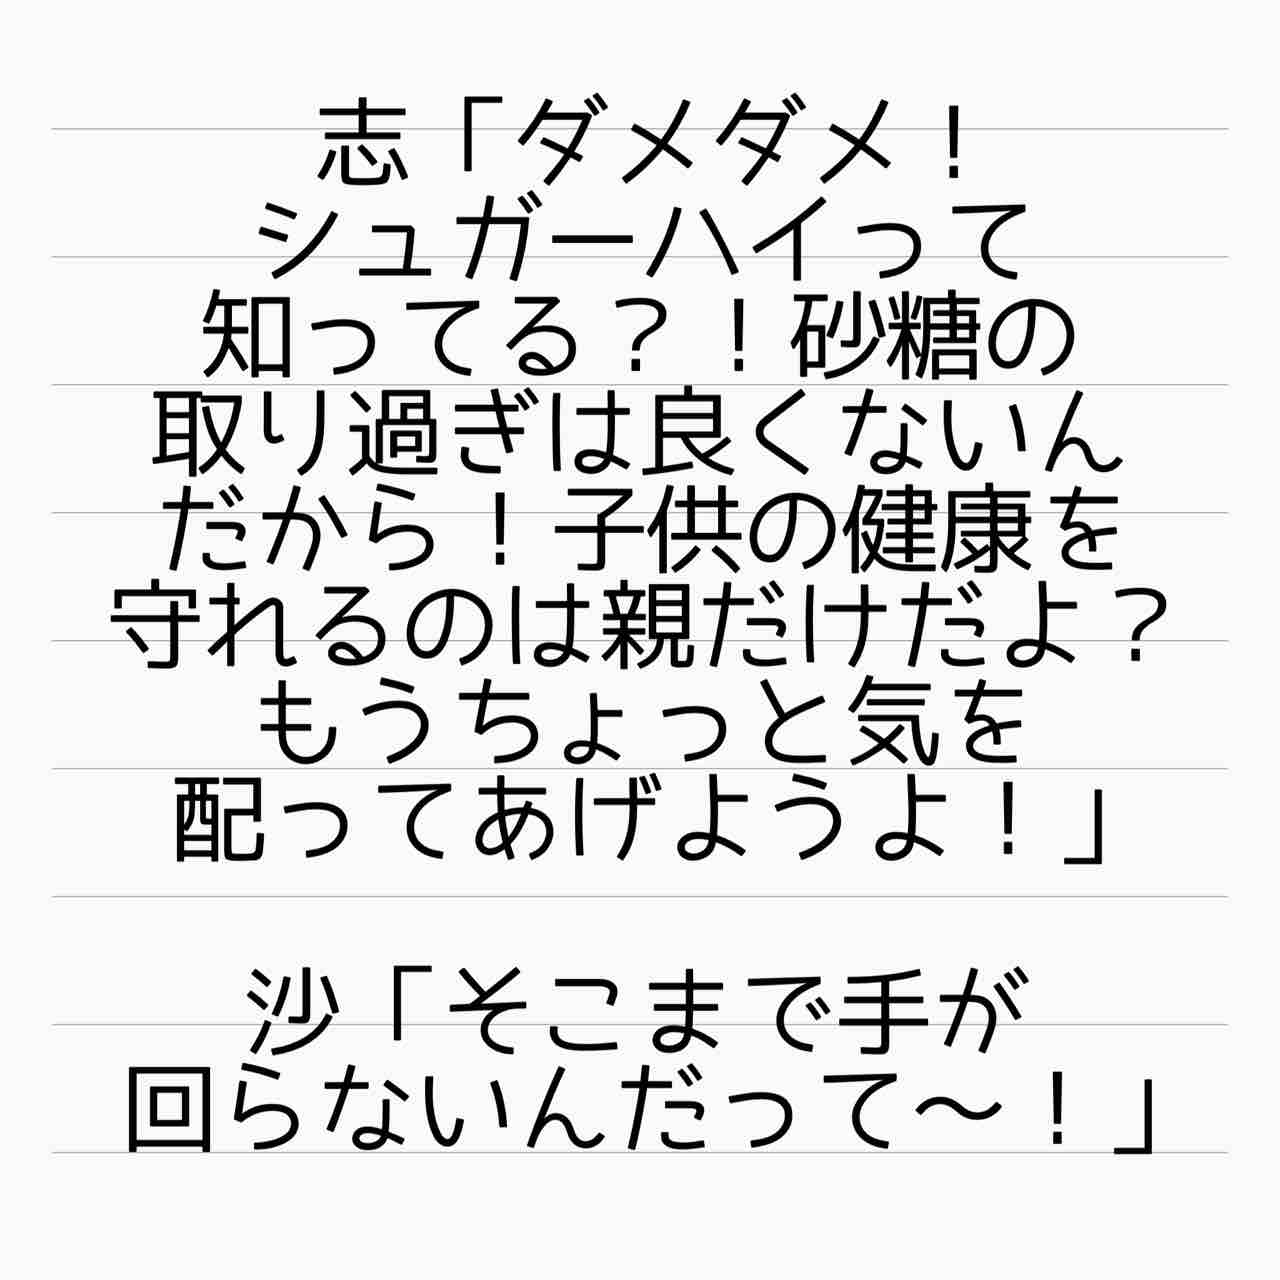 志「ダメダメ！
シュガーハイって
知ってる？！砂糖の
取り過ぎは良くないん
だから！子供の健康を
守れるのは親だけだよ？
もうちょっと気を
配ってあげようよ！」
沙「そこまで手が
回らないんだって〜！」